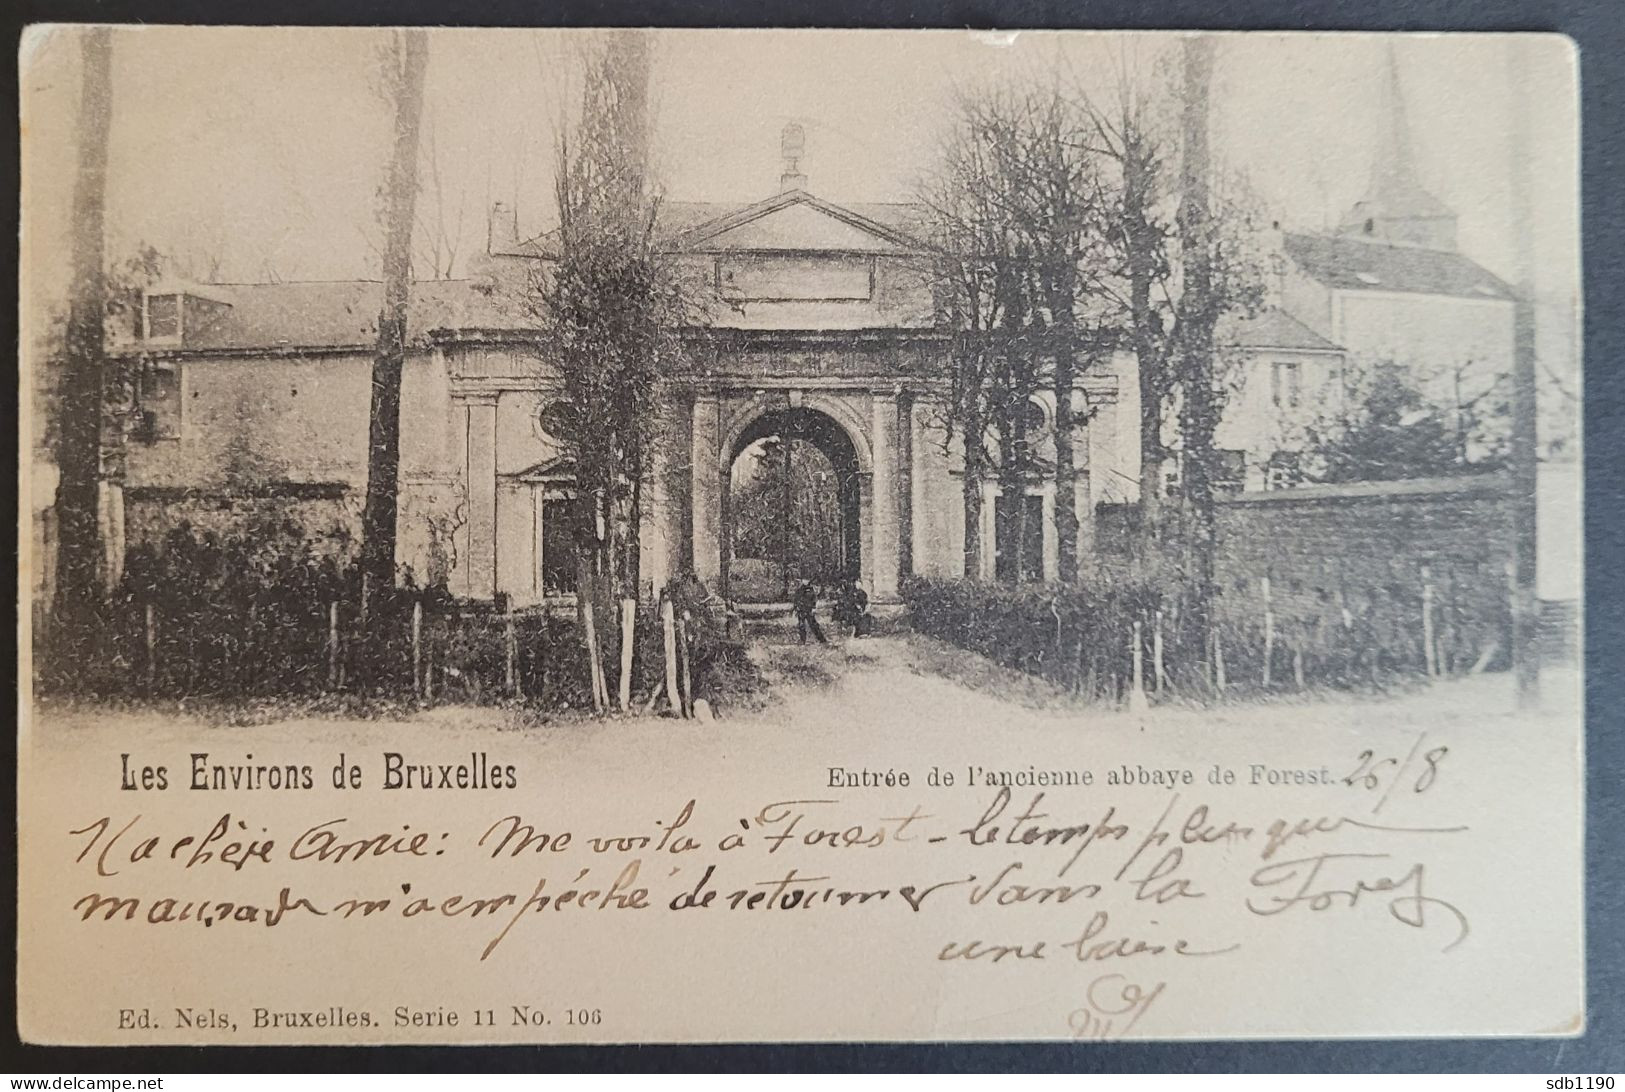 Les Environs de Bruxelles
Entrée de l'ancienne abbaye de Forest. 26/8
Ma chère Amie: Me voila à Forest - le temps plus que
mauvais m'a empêché de retourner dans la Forêt
une baise
Ed. Nels, Bruxelles. Serie 11 No. 106
sdb1190